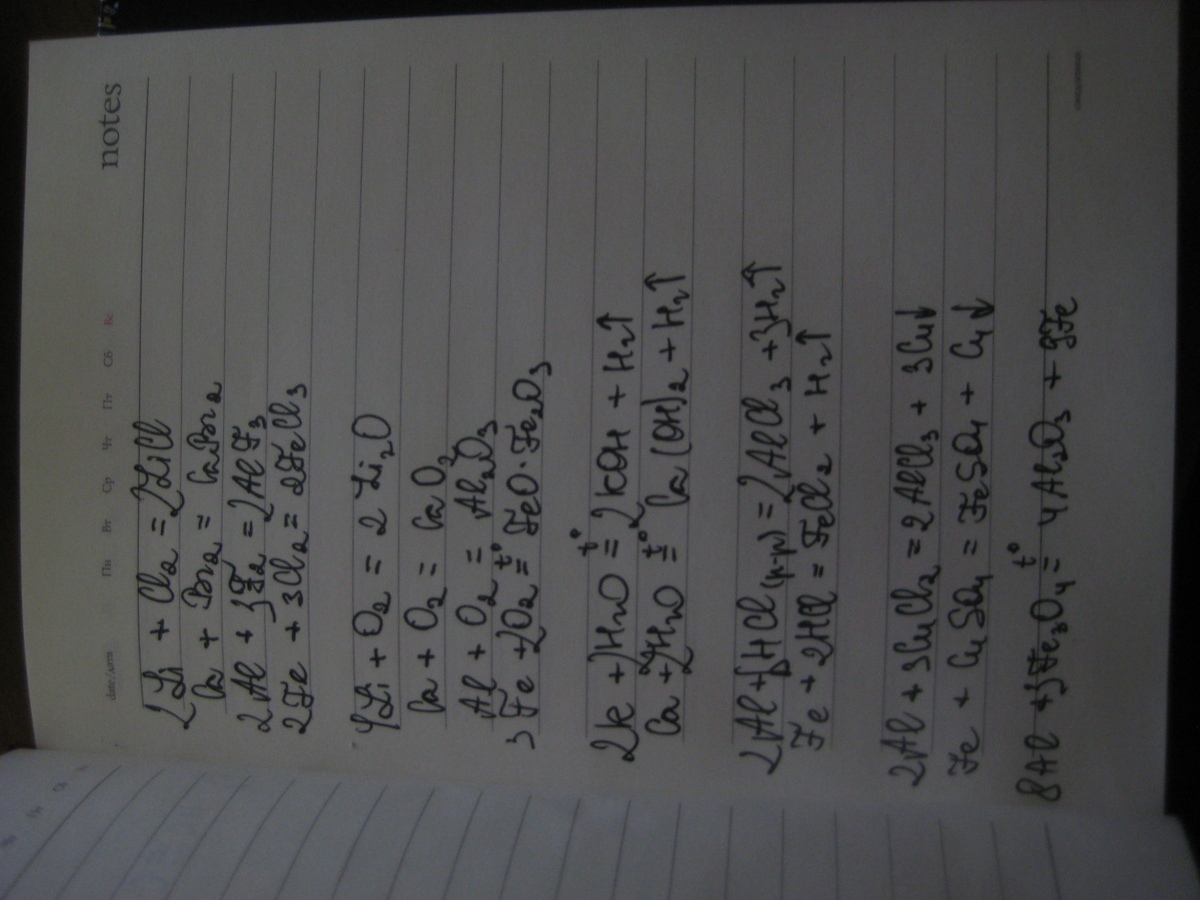 notes
date/дата Пн Вт Ср Чт Пт Сб Вс
2Li + Cl₂ = 2LiCl
Ca + Br₂ = CaBr₂
2Al + 3F₂ = 2AlF₃
2Fe + 3Cl₂ = 2FeCl₃
4Li + O₂ = 2Li₂O
Ca + O₂ = CaO₂
Al + O₂ = Al₂O₃
3Fe + 2O₂ =t° FeO·Fe₂O₃
2K + 2H₂O =t° 2KOH + H₂↑
Ca + 2H₂O =t° Ca(OH)₂ + H₂↑
2Al + 6HCl(р-р) = 2AlCl₃ + 3H₂↑
Fe + 2HCl = FeCl₂ + H₂↑
2Al + 3CuCl₂ = 2AlCl₃ + 3Cu↓
Fe + CuSO₄ = FeSO₄ + Cu↓
8Al + 3Fe₃O₄ =t° 4Al₂O₃ + 9Fe